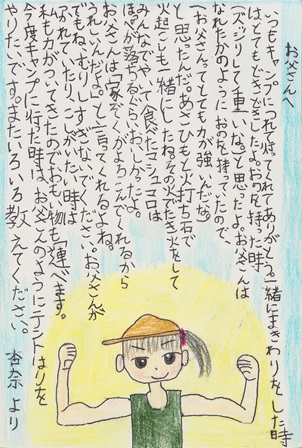 お父さんへ
いつもキャンプにつれて行ってくれてありがとう。一緒にまきわりをした時
はとてもできつきましたよ。おのを持った時
(ズッシリして重いな。)と思ったよ。お父さんは
なれたかのようにおのを持っていたので、
(お父さんってとても力が強いんだな。)
と思ったんだ。あさひもと火打ち石で
火起こしも一緒にしたね。その火でたき火をして
みんなでやって食べたマシュマロは
ほっぺが落ちるぐらいおいしかったよ。
お父さんは「家ぞくがよろこんでくれるから
うれしいんだよ。」と言ってくれるよね。
でもね、むりしすぎないでください。お父さんが
つかれていたり、こしがいたい時は
私も力がついてきたのでおもい物も運べます。
今度キャンプに行った時は、お父さんのようにテントはりを
やりたいです。またいろいろ教えてください。
杏奈より